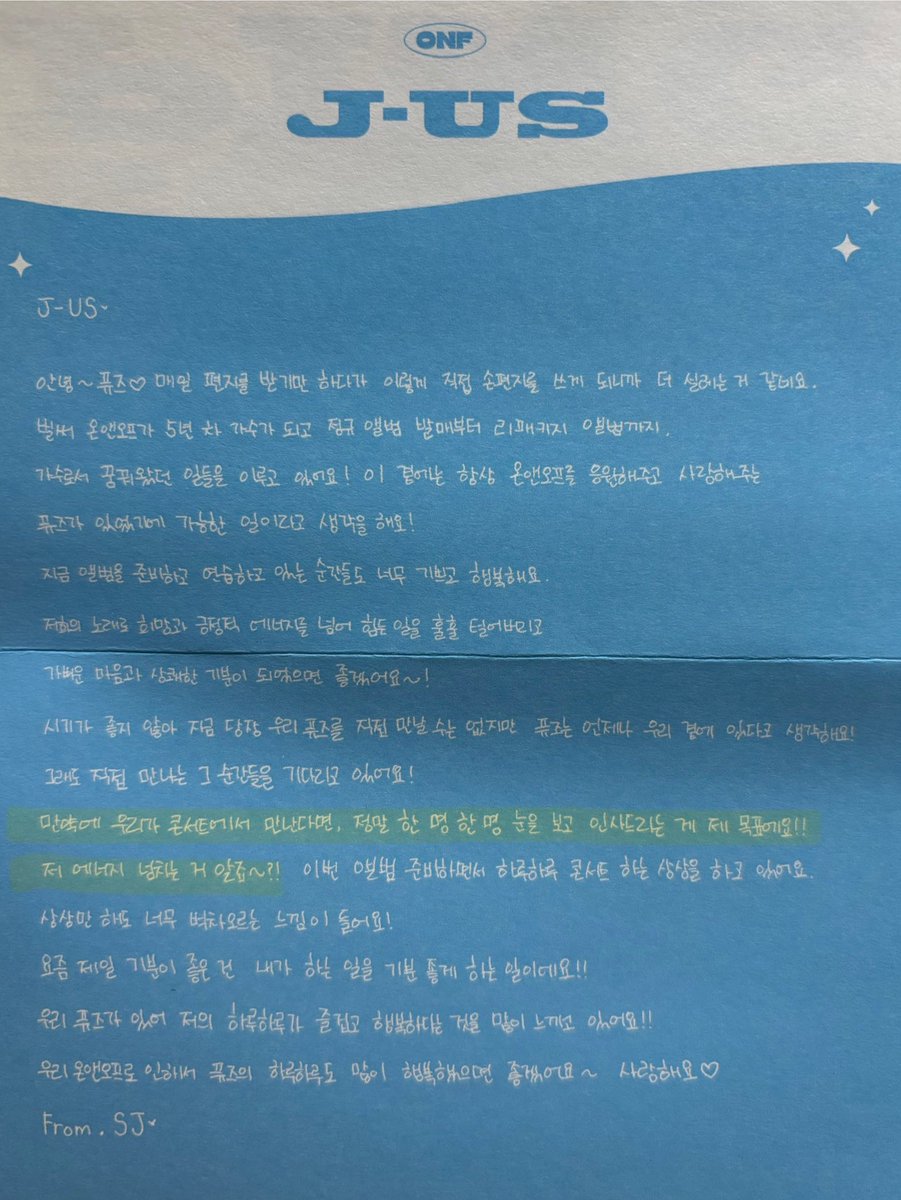 ONF
J-US
J-US~
안녕~ 퓨즈♡ 매일 편지를 받기만 하다가 이렇게 직접 손편지를 쓰게 되니까 더 설레는 거 같네요.
벌써 온앤오프가 5년 차 가수가 되고 정규 앨범 발매부터 리패키지 앨범까지.
가수로서 꿈꿔왔던 일들을 이루고 있어요! 이 곁에는 항상 온앤오프를 응원해주고 사랑해주는
퓨즈가 있었기에 가능한 일이라고 생각을 해요!
지금 앨범을 준비하고 연습하고 있는 순간들도 너무 기쁘고 행복해요.
저희의 노래로 희망과 긍정적 에너지를 넘어 힘든 일을 훌훌 털어버리고
가벼운 마음과 상쾌한 기분이 되었으면 좋겠어요~!
시기가 좋지 않아 지금 당장 우리 퓨즈를 직접 만날 수는 없지만 퓨즈는 언제나 우리 곁에 있다고 생각해요!
그래도 직접 만나는 그 순간들을 기다리고 있어요!
만약에 우리가 콘서트에서 만난다면, 정말 한 명 한 명 눈을 보고 인사드리는 게 제 목표에요!!
저 에너지 넘치는 거 알죠~?! 이번 앨범 준비하면서 하루하루 콘서트 하는 상상을 하고 있어요.
상상만 해도 너무 벅차오르는 느낌이 들어요!
요즘 제일 기분이 좋은 건 내가 하는 일을 기분 좋게 하는 일이에요!!
우리 퓨즈가 있어 저의 하루하루가 즐겁고 행복하다는 것을 많이 느끼고 있어요!!
우리 온앤오프로 인해서 퓨즈의 하루하루도 많이 행복했으면 좋겠어요~ 사랑해요♡
From. SJ~